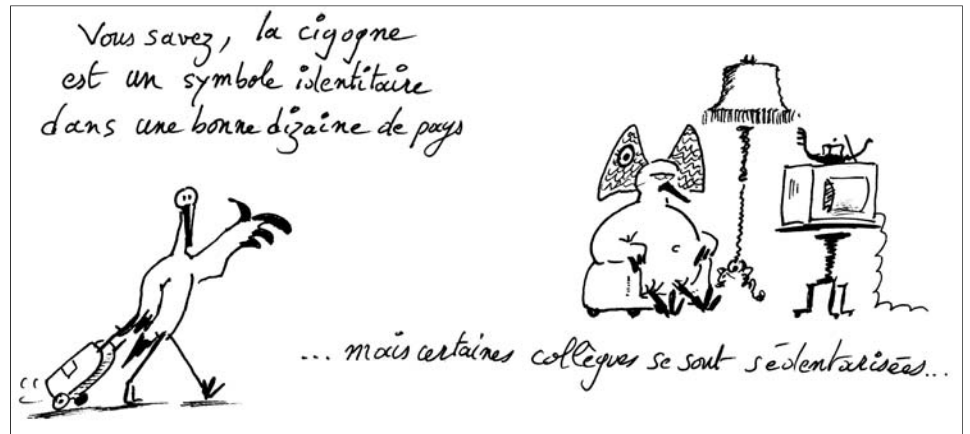 Vous savez, la cigogne
est un symbole identitaire
dans une bonne dizaine de pays
... mais certaines collègues se sont sédentarisées...